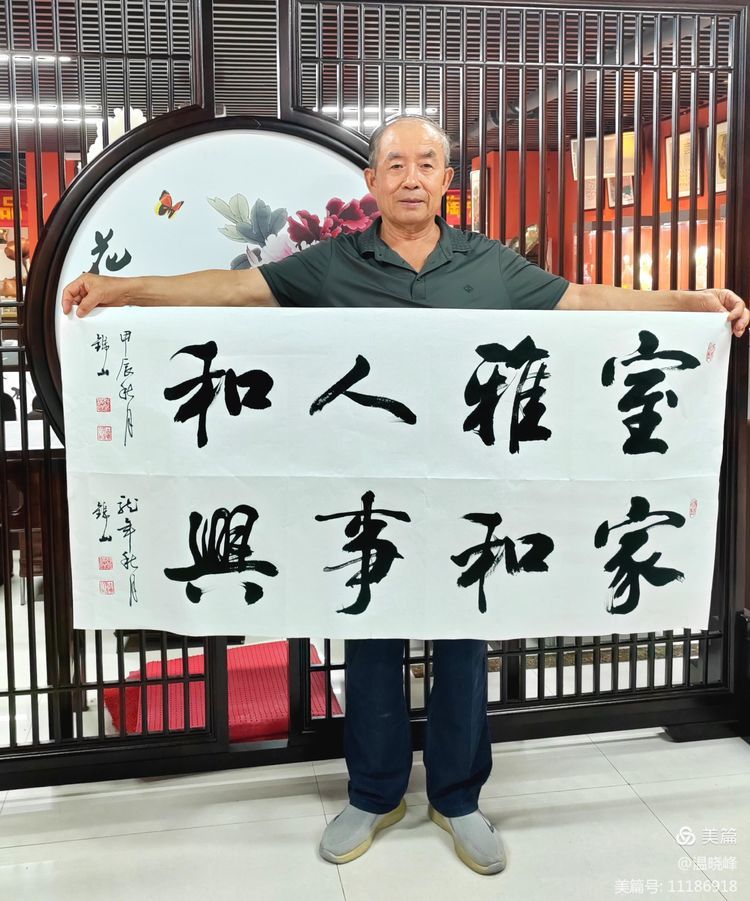 室雅人和
甲辰秋月
錦山
家和事興
龍年秋月
錦山
花
品
陶
美篇
@温晓峰
美篇号: 11186918